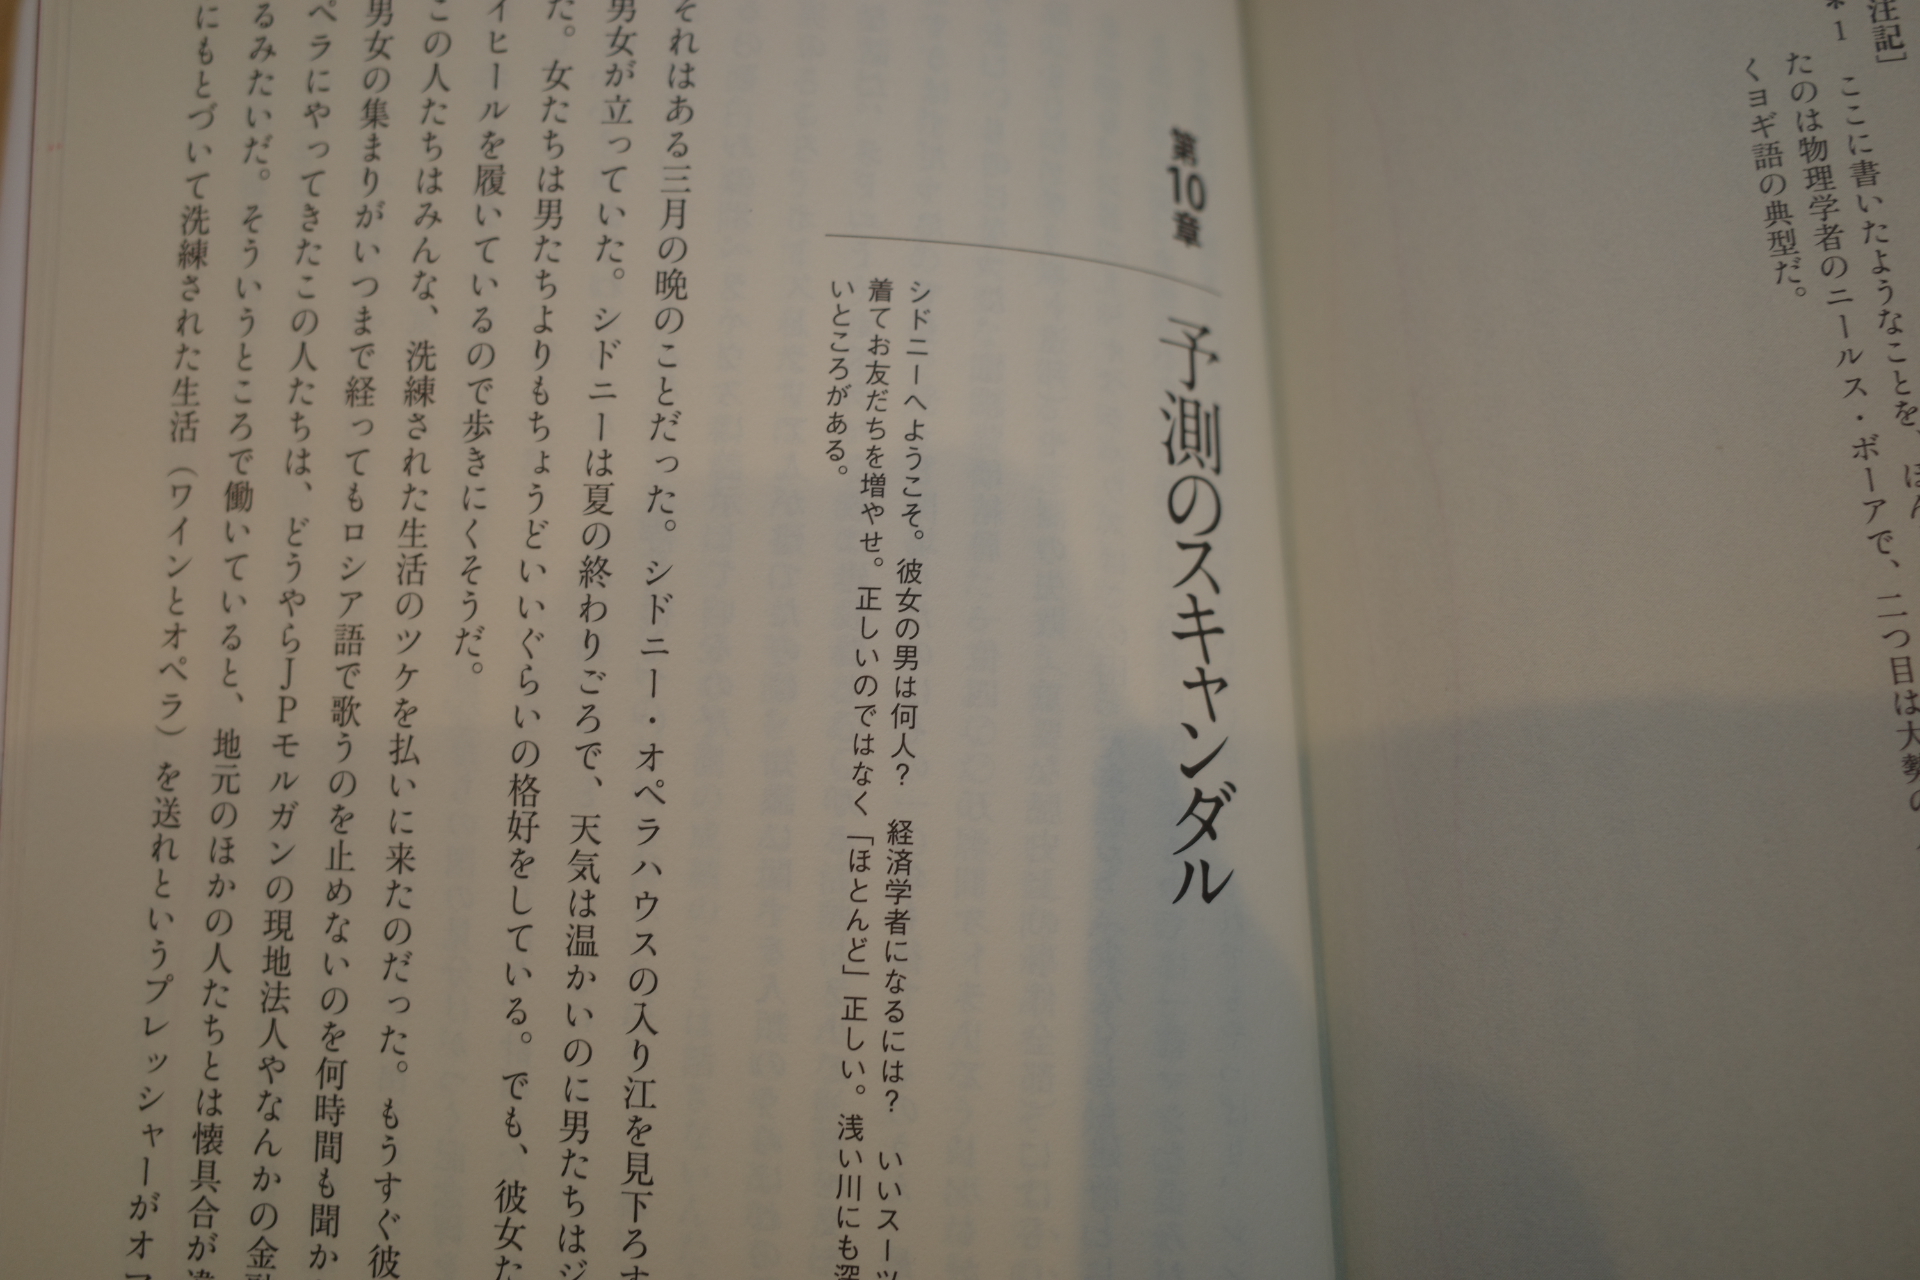 注記］
＊1　ここに書いたようなことを、ほん
たのは物理学者のニールス・ボーアで、二つ目は大勢の
くヨギ語の典型だ。
第10章
予測のスキャンダル
シドニーへようこそ。彼女の男は何人？　経済学者になるには？　いいスーツ
着てお友だちを増やせ。正しいのではなく「ほとんど」正しい。浅い川にも深
いところがある。
それはある三月の晩のことだった。シドニー・オペラハウスの入り江を見下ろす
男女が立っていた。シドニーは夏の終わりごろで、天気は温かいのに男たちはジ
た。女たちは男たちよりもちょうどいいぐらいの格好をしている。でも、彼女た
イヒールを履いているので歩きにくそうだ。
この人たちはみんな、洗練された生活のツケを払いに来たのだった。もうすぐ彼
男女の集まりがいつまで経ってもロシア語で歌うのを止めないのを何時間も聞か
ペラにやってきたこの人たちは、どうやらJPモルガンの現地法人やなんかの金融
るみたいだ。そういうところで働いていると、地元のほかの人たちとは懐具合が違
にもとづいて洗練された生活（ワインとオペラ）を送れというプレッシャーがオ